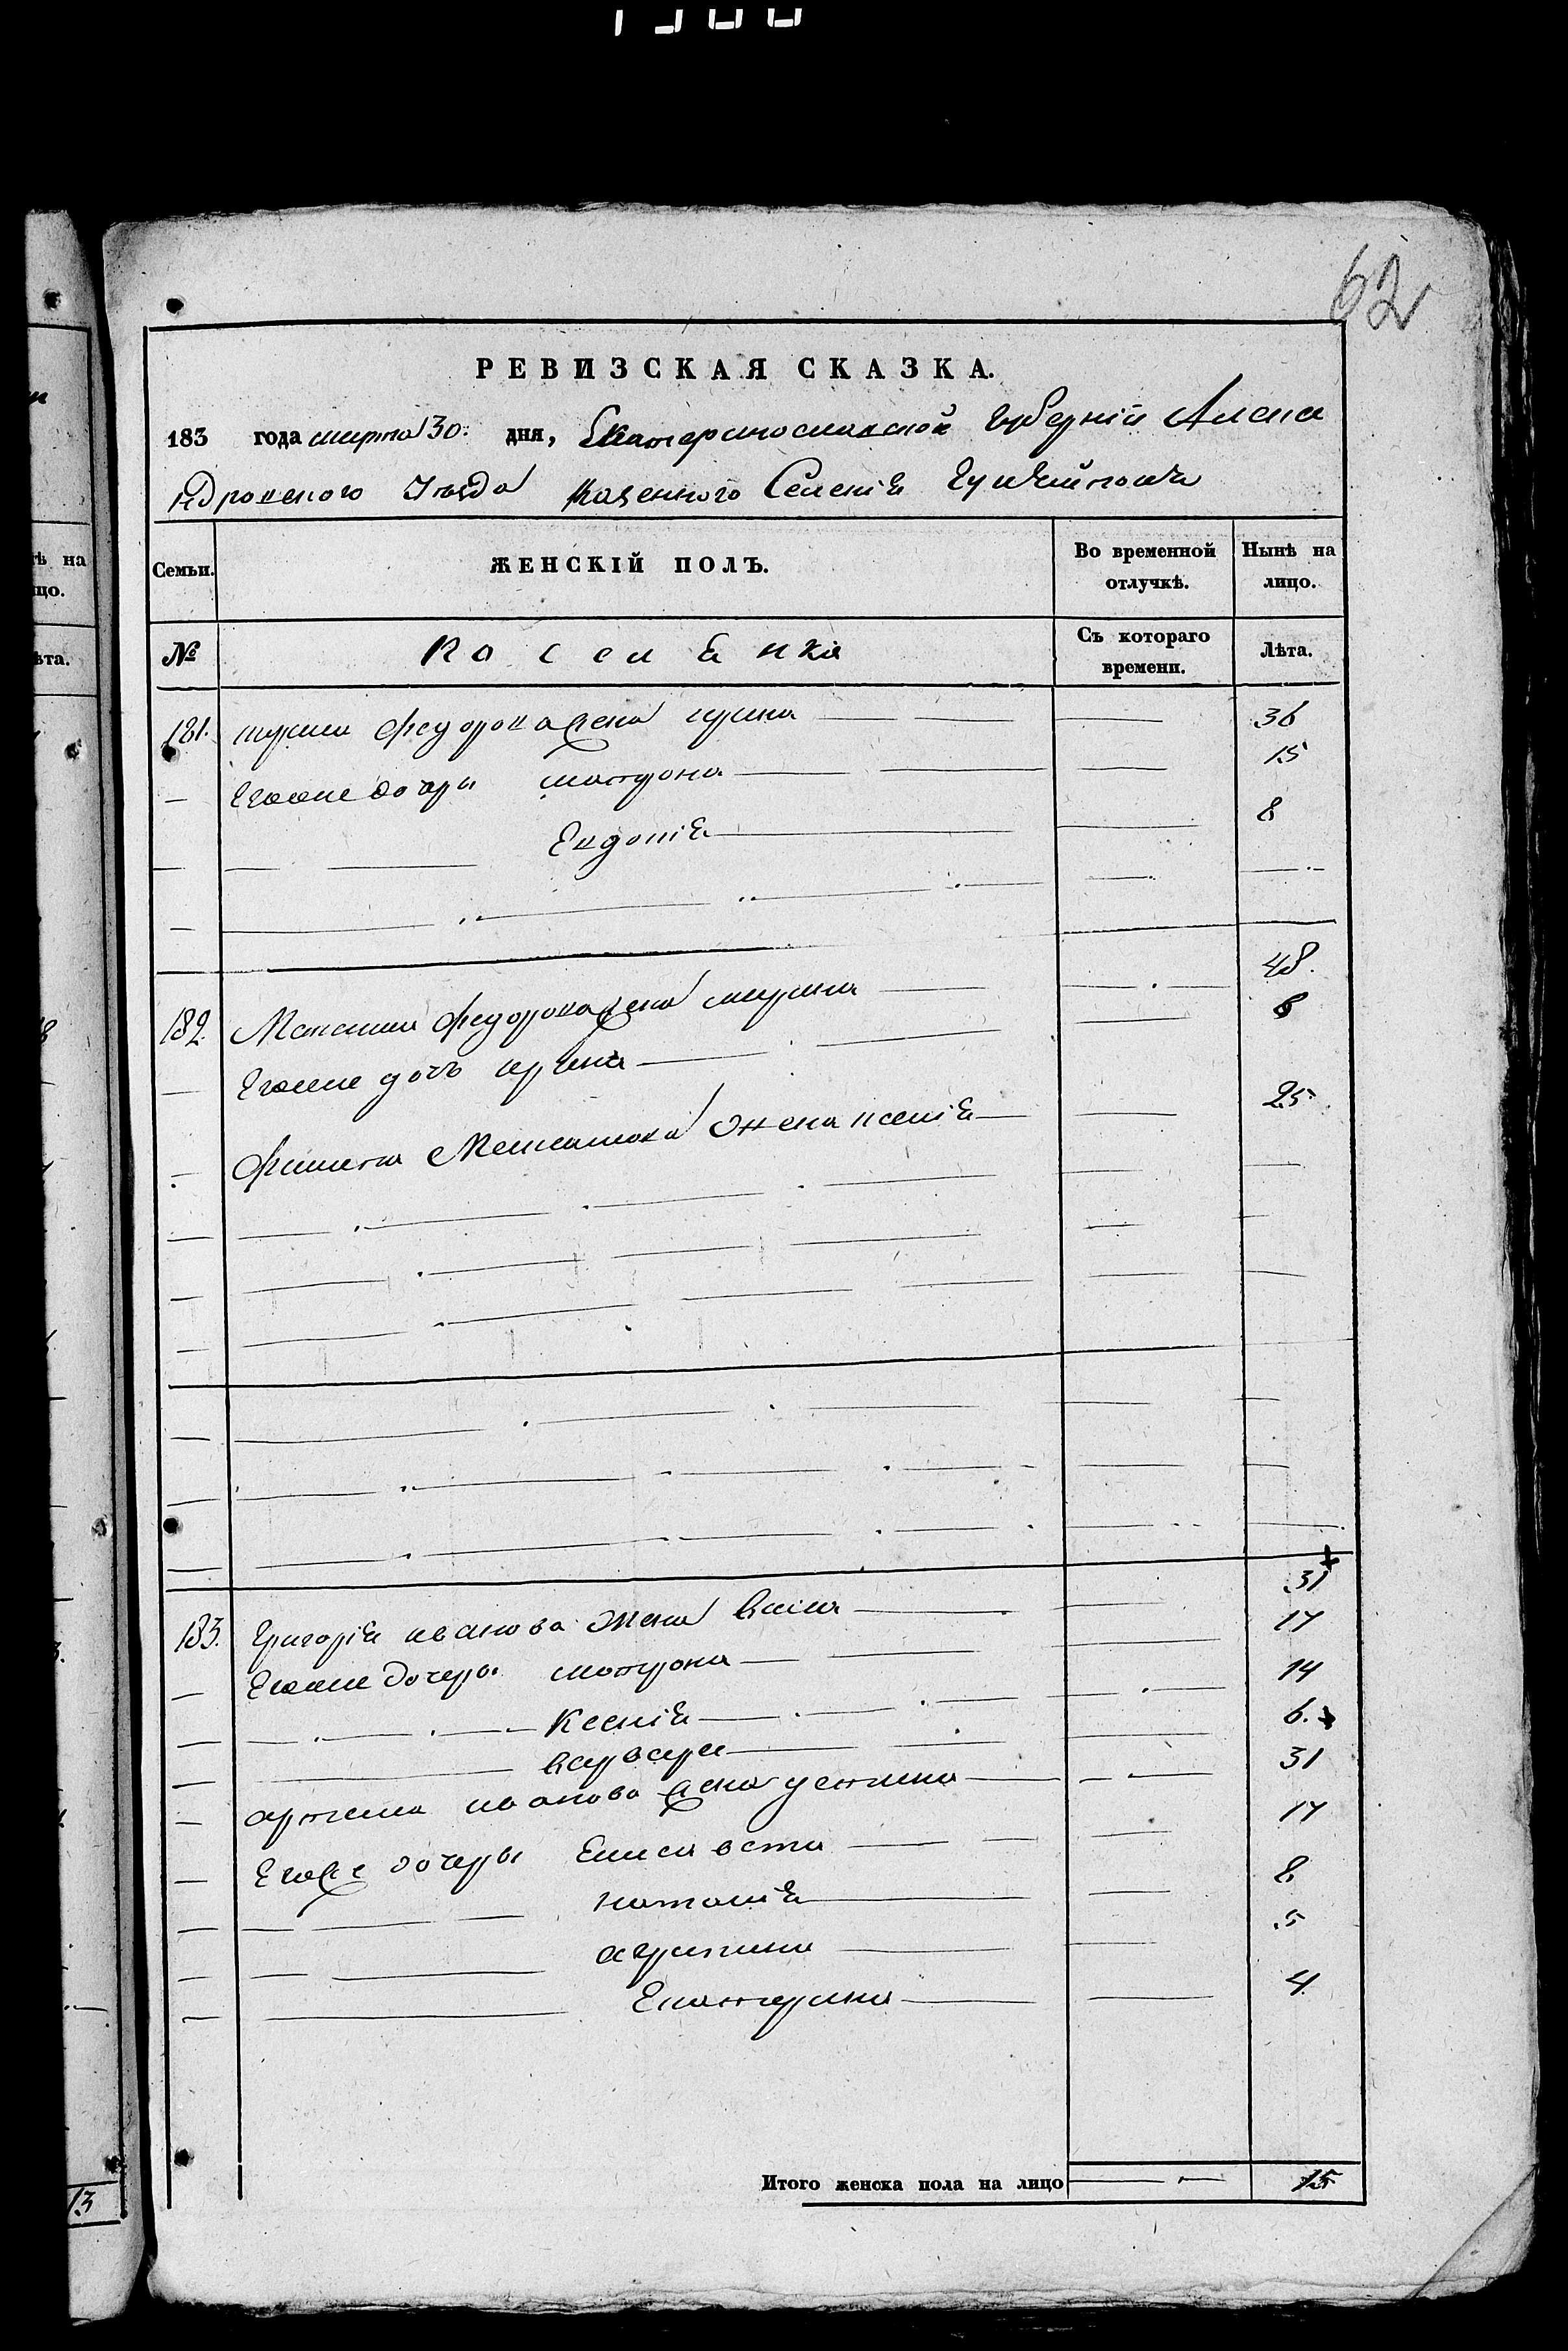 62
РЕВИЗСКАЯ СКАЗКА.
183 года марта 30. дня, Екатеринославской Губерніи Алекса
ндровского Уезда Казенного Селенія
Семьи. ЖЕНСКІЙ ПОЛЪ. Во временной отлучкѣ. Нынѣ на лицо.
№ Поселянка Съ котораго времени. Лѣта.
181. Федорова жена ирина 36
Егоже дочери матрона 15
Евдокія 8
182. Максима Федорова жена марина 48.
Егоже дочь ирина 8
Филипа Максимова жена ксенія 25
183. Григорія иванова жена 31
Егоже дочери матрона 17
Ксенія 14
варвара 6.
артема иванова жена устина 31
Егоже дочери Елисавета 17
наталія 8
агрипина 5
Екатерина 4
Итого женска пола на лицо 15
ѣ на
цо.
ѣта.
13